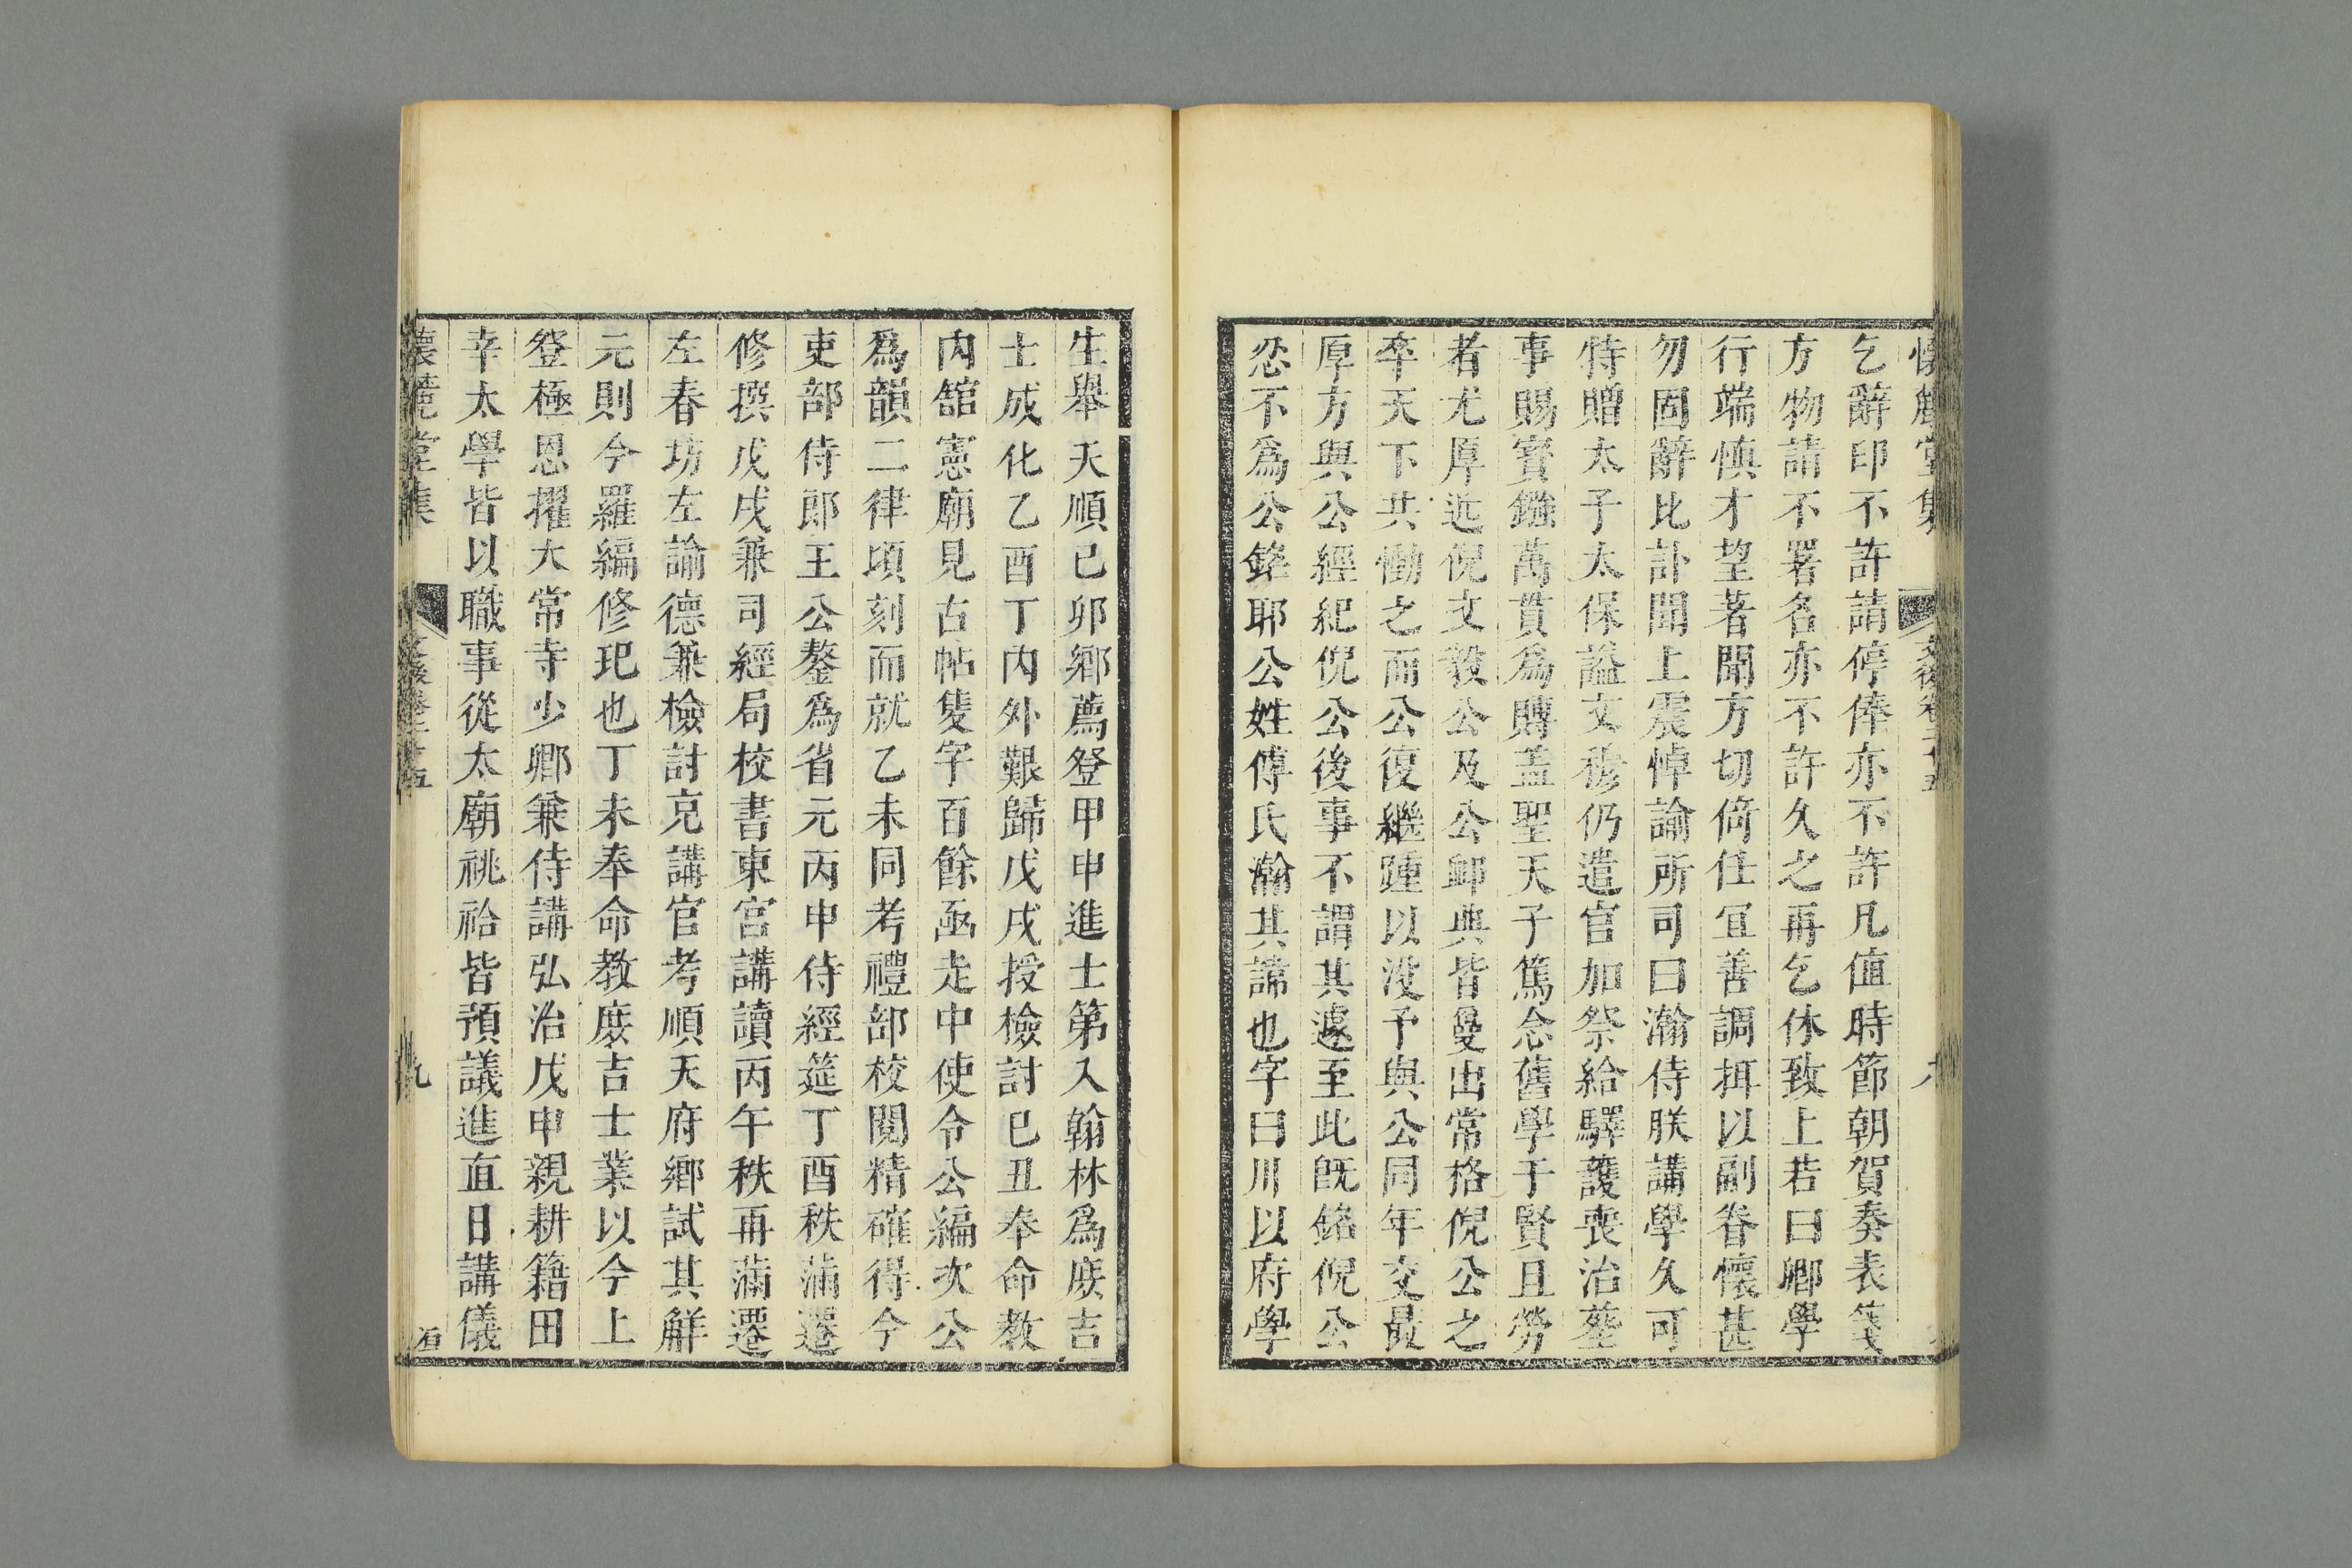 懷麓堂集 文後卷二十五 八
乞辭印不許請停俸亦不許凡值時節朝賀奏表箋
方物請不署名亦不許久之再乞休致上若曰卿學
行端慎才望著聞方切倚任宜善調攝以副眷懷甚
勿固辭比訃聞上震悼諭所司曰瀚侍朕講學久可
特贈太子太保謚文穆仍遣官加祭給驛護喪治塟
事賜寶鏹萬貫爲賻盖聖天子篤念舊學于賢且勞
者尤厚近倪文毅公及公卹典皆曼出常格倪公之
卒天下共慟之而公復繼踵以没予與公同年交最
厚方與公經紀倪公後事不謂其遽至此旣銘倪公
忍不爲公銘耶公姓傅氏瀚其諱也字曰川以府學
生舉天順己卯鄉薦登甲申進士第入翰林爲庶吉
士成化乙酉丁内外艱歸戊戌授檢討己丑奉命教
内舘憲廟見古帖隻字百餘亟走中使令公編次公
爲韻二律頃刻而就乙未同考禮部校閱精確得今
吏部侍郎王公鏊爲省元丙申侍經筵丁酉秩滿遷
修撰戊戌兼司經局校書東宫講讀丙午秩再滿遷
左春坊左諭德兼檢討克講官考順天府鄉試其解
元則今羅編修玘也丁未奉命教庶吉士業以今上
登極恩擢太常寺少卿兼侍講弘治戊申親耕籍田
幸太學皆以職事從太廟祧祫皆預議進直日講儀
懷麓堂集 文後卷二十五 九